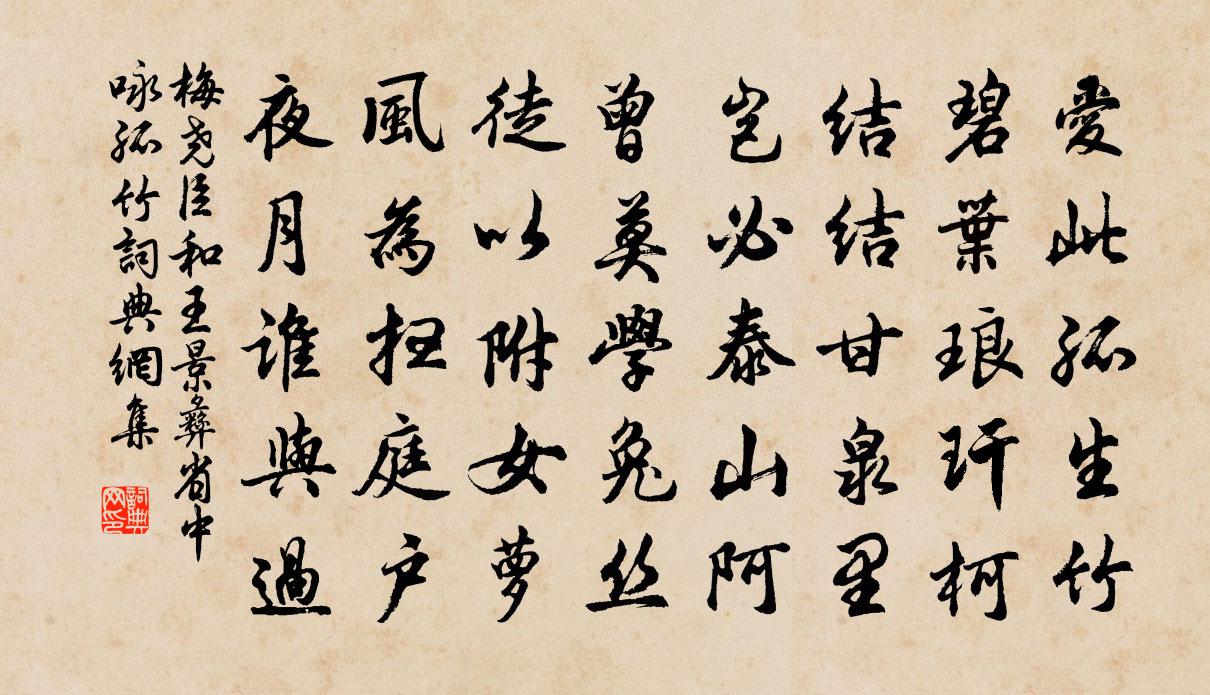 愛此孤生竹
碧葉琅玕柯
結結甘泉里
豈必泰山阿
曾莫學兔丝
徒以附女萝
風為扫庭户
夜月谁與過
梅尧臣和王景彝省中
咏孤竹詞典網集
詞典网印